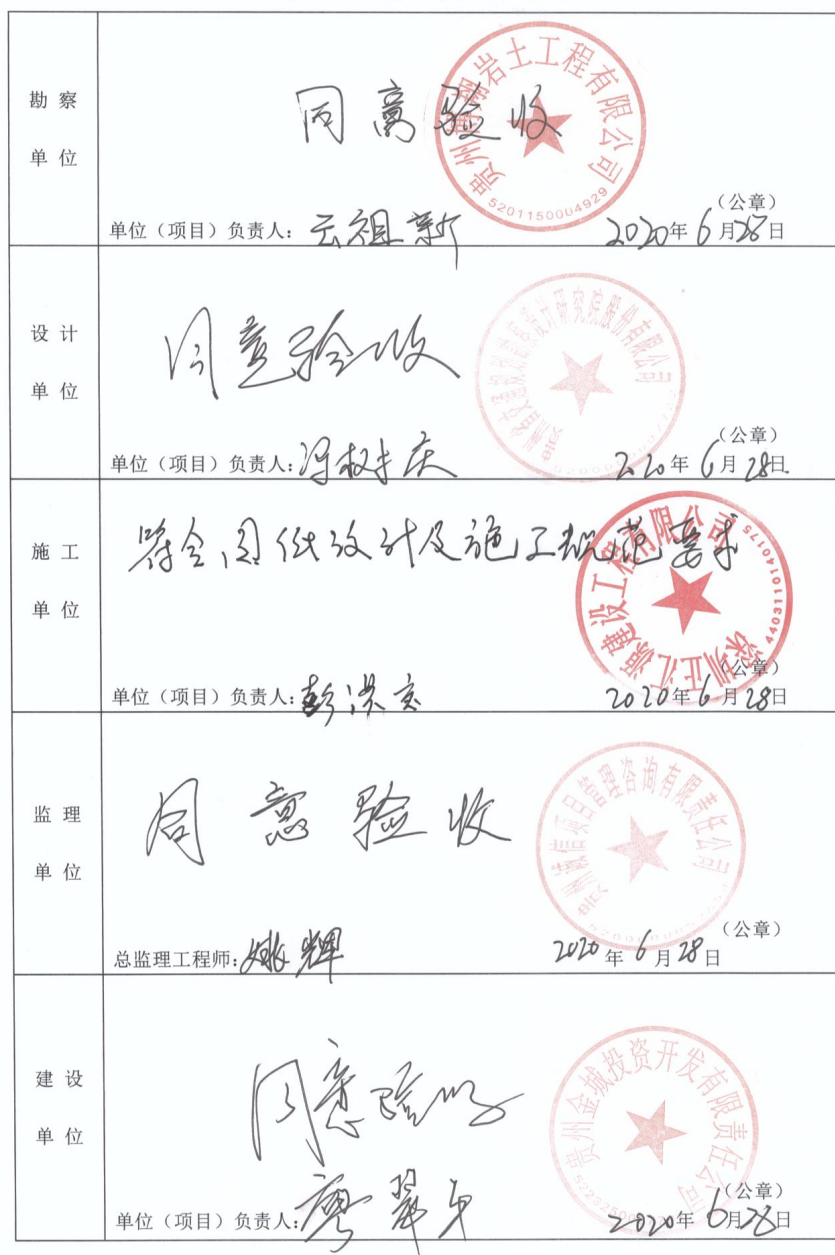 勘察
单位
同意验收
岩土工程有限公司
5201150004929
（公章）
单位（项目）负责人：云祖新 2020年6月28日
设计
单位
同意验收
设计研究院股份有限公司
（公章）
单位（项目）负责人：冯树庆 2020年6月28日
施工
单位
符合图纸设计及施工规范要求
深圳正汇源建设工程有限公司
4403110140175
（公章）
单位（项目）负责人：彭 2020年6月28日
监理
单位
同意验收
贵州诚信项目管理咨询有限责任公司
（公章）
总监理工程师：姚辉 2020年6月28日
建设
单位
同意验收
贵州金城投资开发有限责任公司
（公章）
单位（项目）负责人：廖翠 2020年6月28日